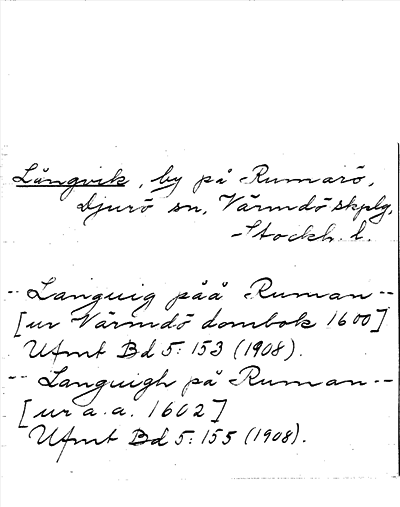 Långvik, by på Rumarö,
Djurö sn, Värmdö skplg,
Stockh. l.
-- Languig påå Ruman --
[ur Värmdö dombok 1600]
Ufmt Bd 5: 153 (1908).
-- Languigh på Ruman --
[ur a. a. 1602]
Ufmt Bd 5: 155 (1908).